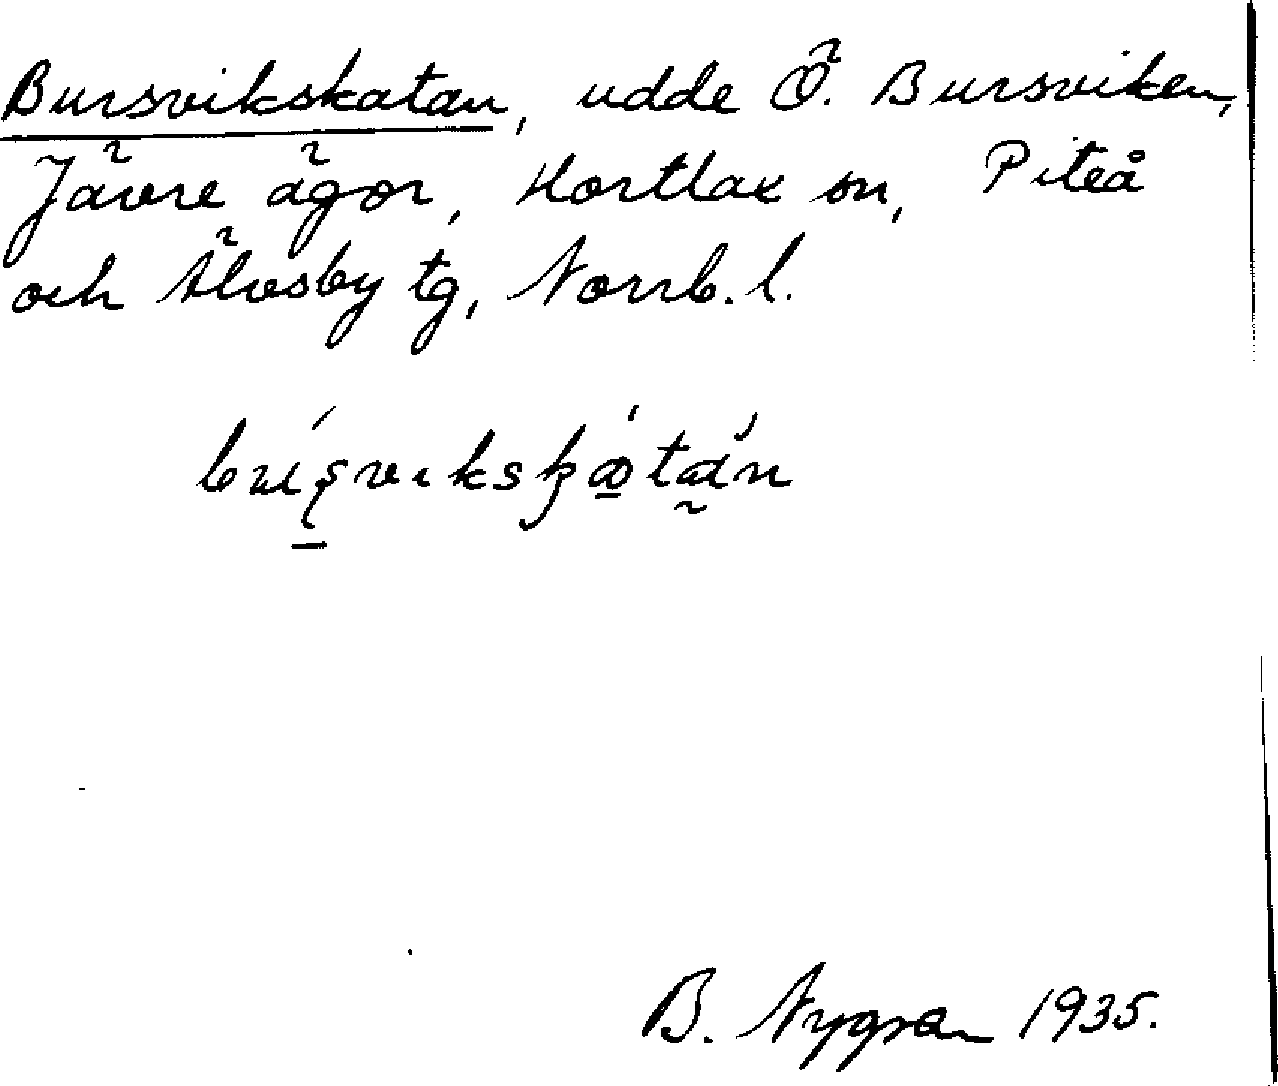 Bursvikskatan, udde Ö. Bursviken,
Jävre ägor, Hortlax sn, Piteå
och Älvsby tg, Norrb. l.
B. Nygren 1935.